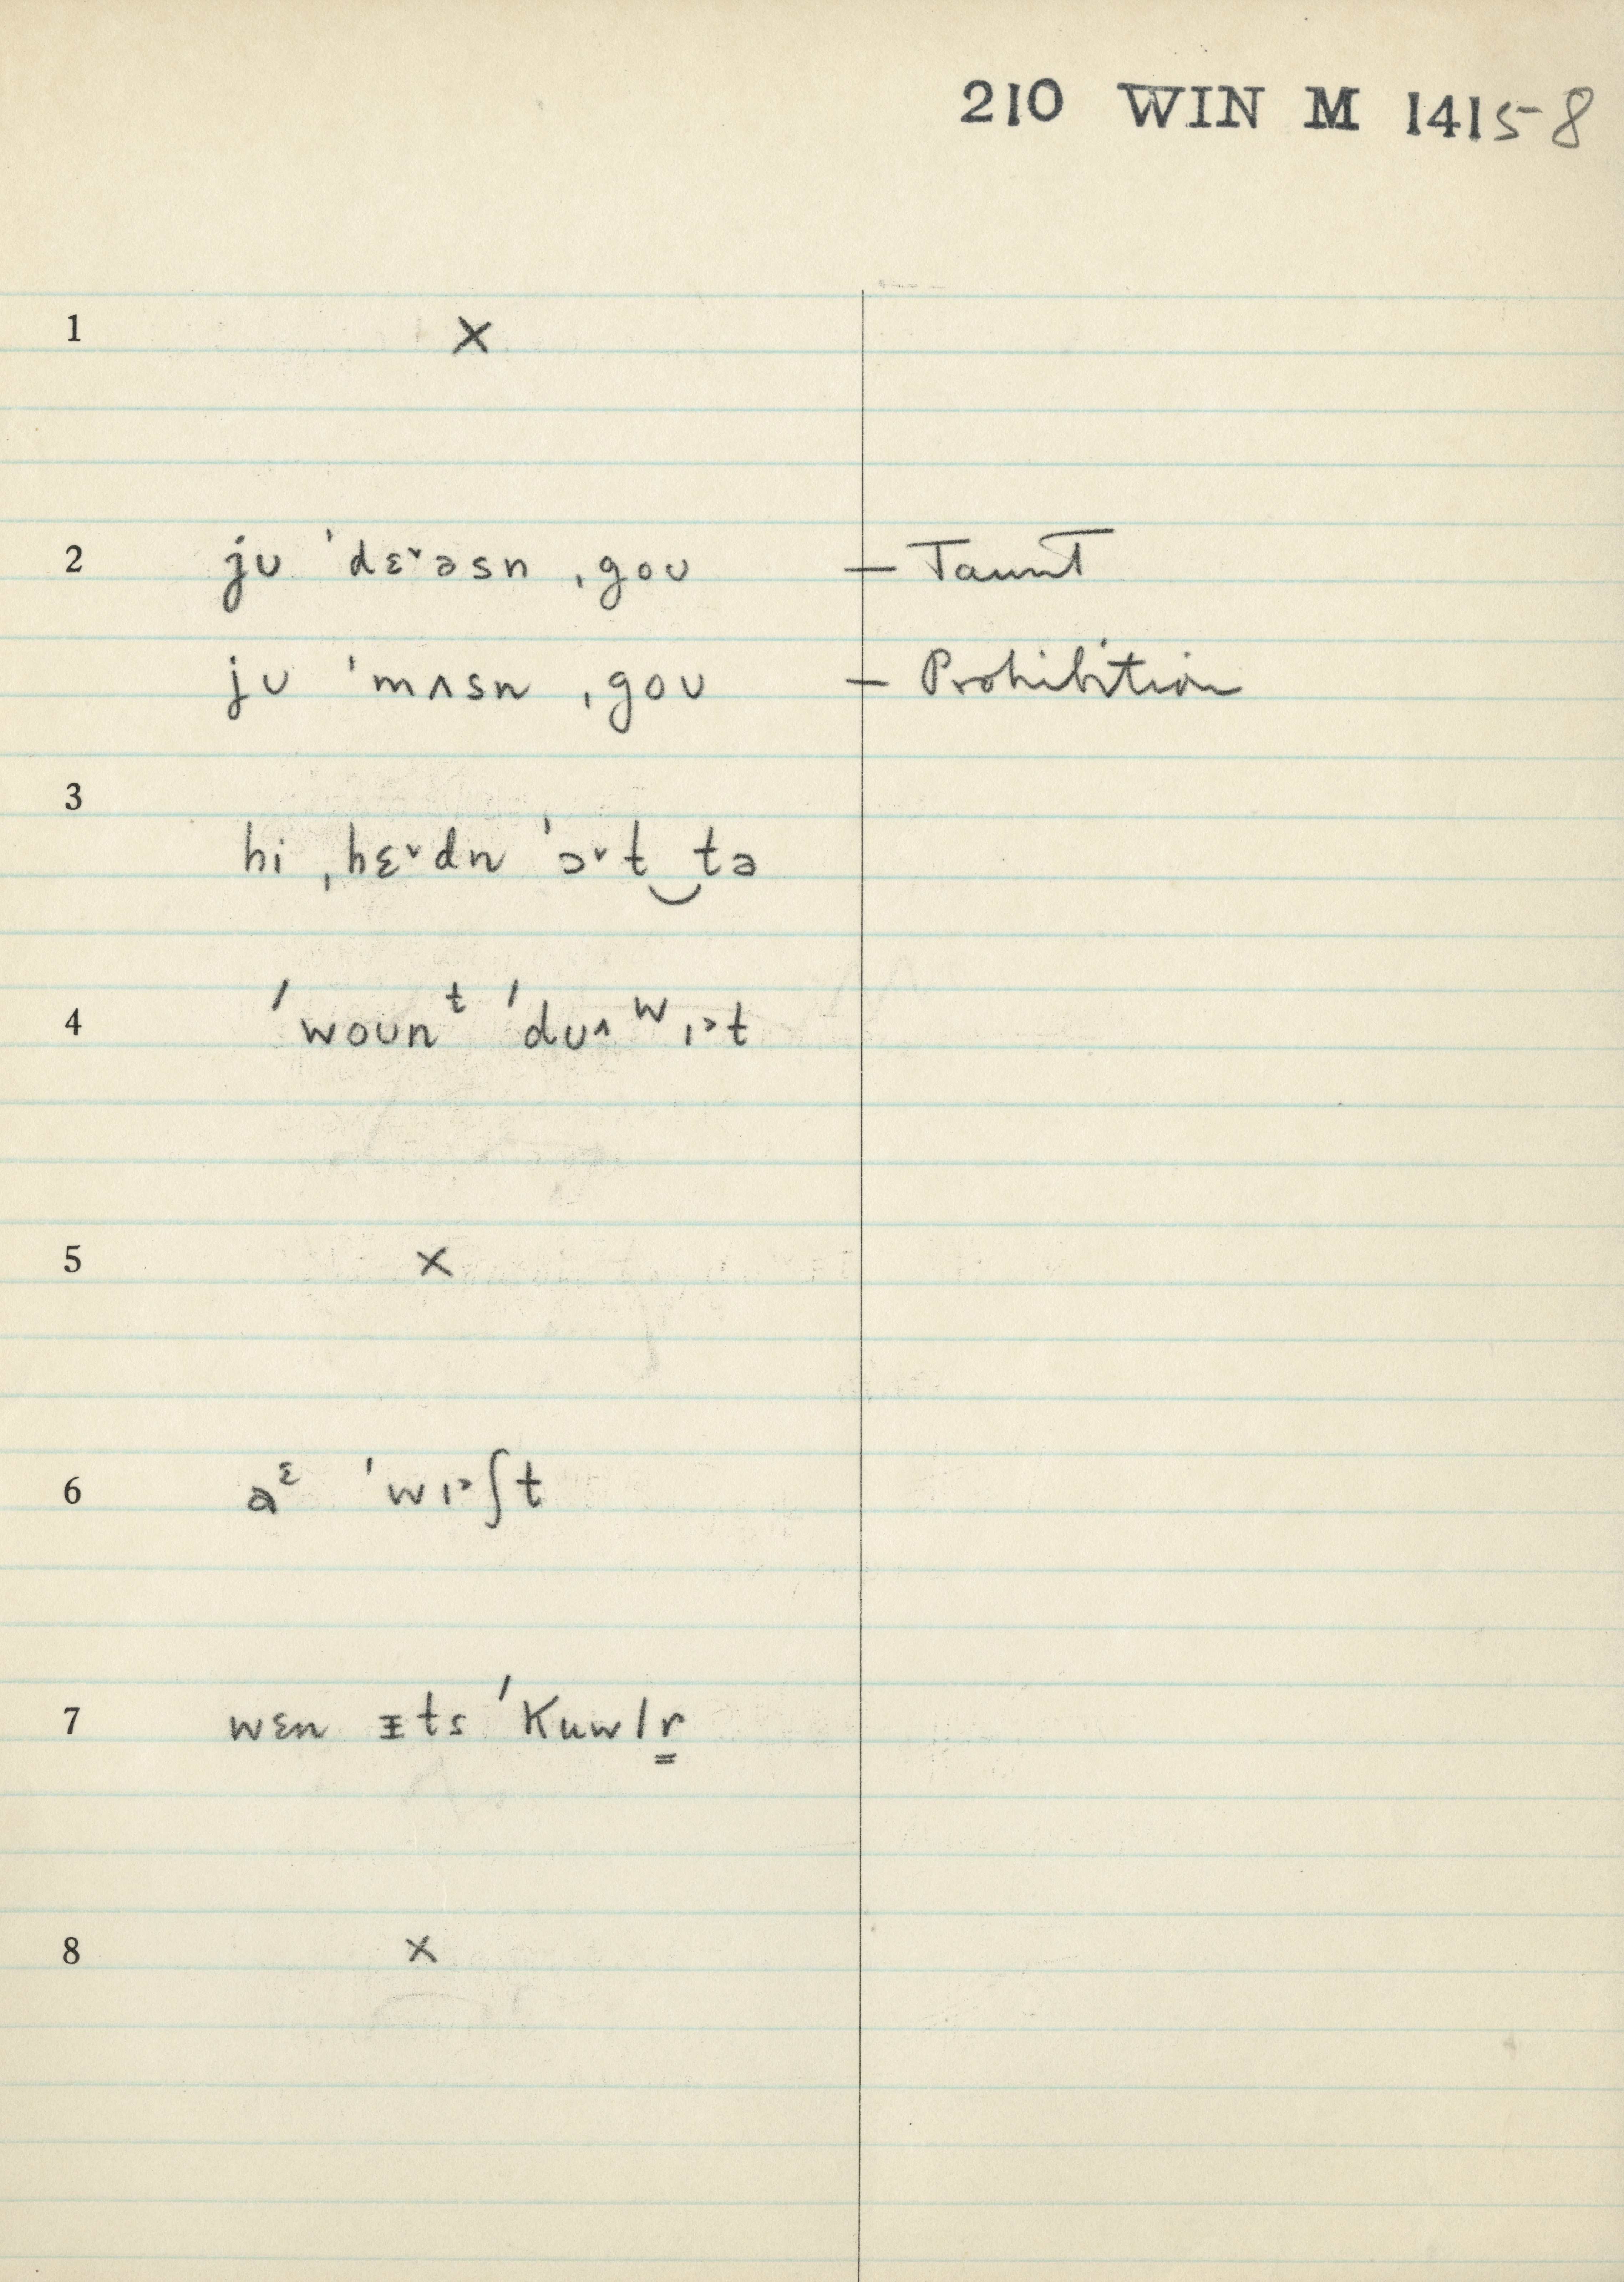 210 WIN M 1415-8
1 X
2 jʊ ˈdɛ˅əsn ˌgoʊ – Taunt
jʊ ˈmʌsn ˌgoʊ – Prohibition
3
hi ˌhɛ˅dn ˈɔ˅t‿tə
4 ˈwoʊnᵗ ˈdʊ˄ʷɪ˃t
5 X
6 aᵋ ˈwɪ˃ʃt
7 wɛn ᵻts ˈKuwlr̳
8 X